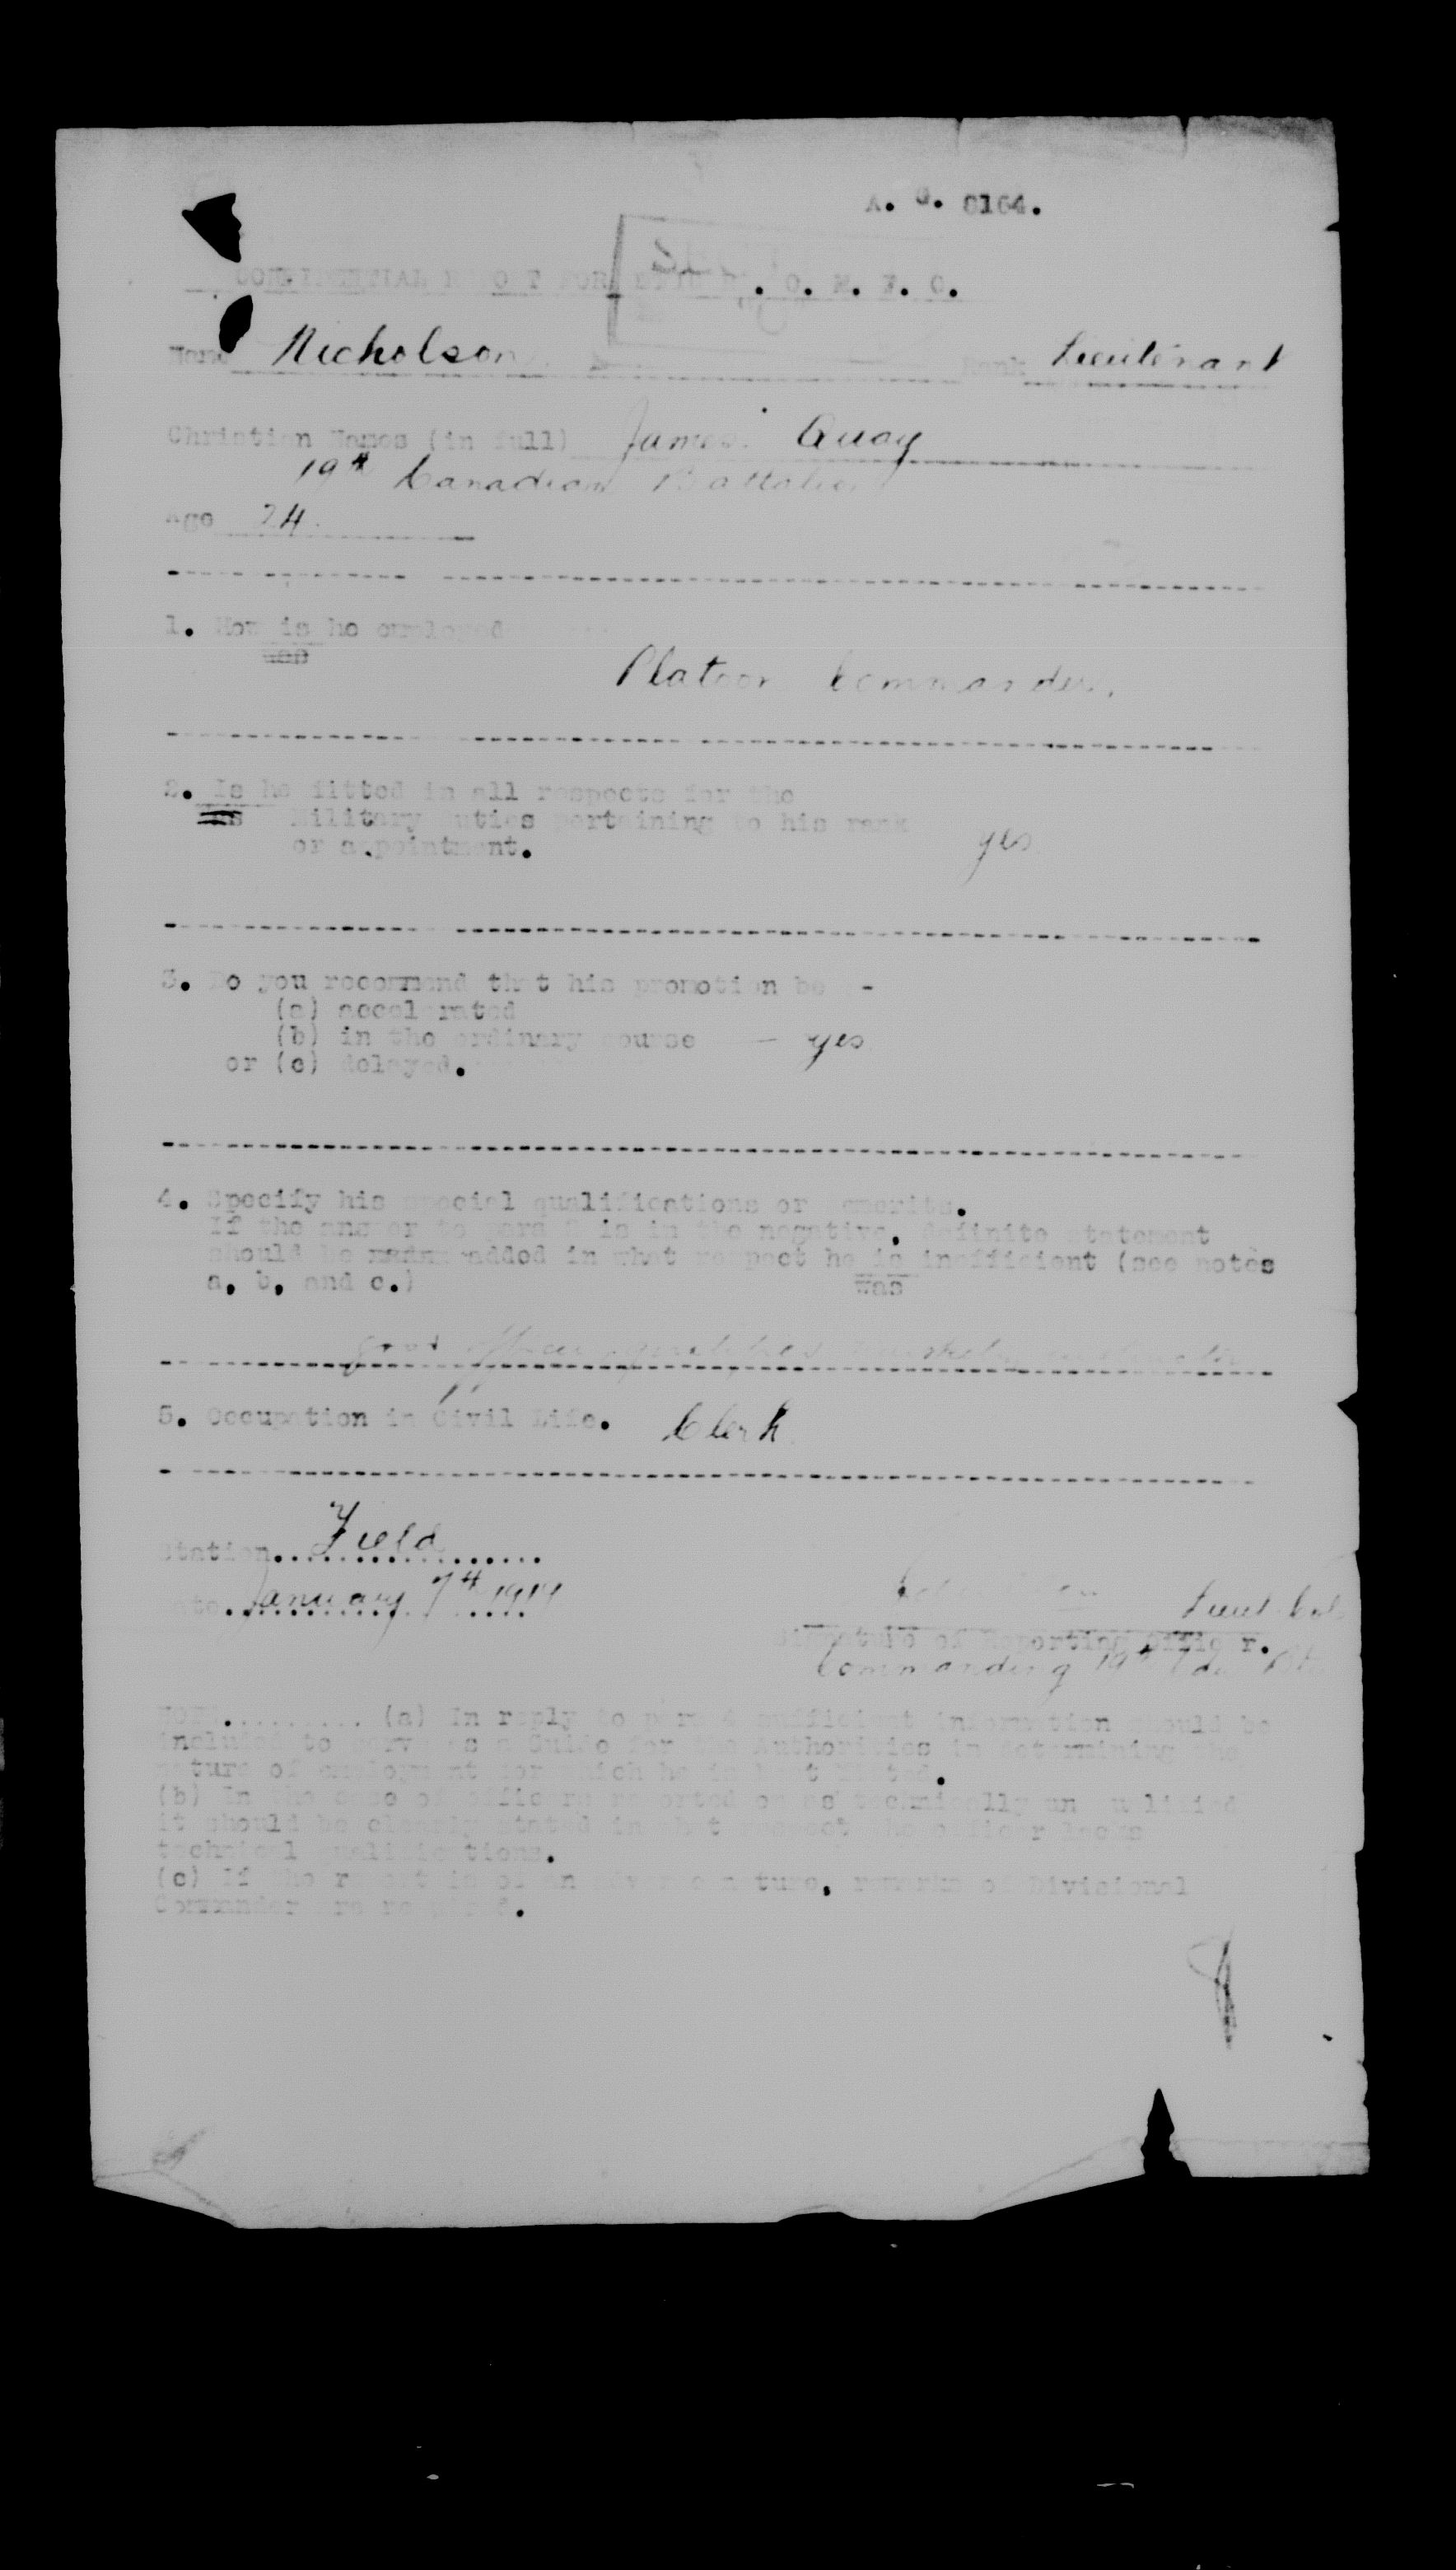 A. G. 8164.
CONFIDENTIAL REPORT FOR O. M. F. C.
Name Nicholson Rank Lieutenant
Christian Names (in full) James Quay
19th Canadian Battalion
Age 24.
1. How is he employed
was
Platoon Commander.
2. Is he fitted in all respects for the
Was Military Duties pertaining to his rank
or appointment. yes
3. Do you recommend that his promotion be -
(a) accelerated
(b) in the ordinary course - yes
or (c) delayed.
4. Specify his special qualifications or demerits.
If the answer to para 2 is in the negative, definite statement
should be added in what respect he is inefficient (see notes
was
a, b, and c.)
good officer qualifies
5. Occupation in Civil Life. Clerk
Station.. Field
Date. January 7th
Lieut. Col
Signature of Reporting Officer.
Commanding 19th
NOTE.......... (a) In reply to para 4 sufficient information should be
included to serve as a Guide for the Authorities in determining the
nature of employment for which he is best fitted.
(b) In the case of officers reported on as technically unqualified
it should be clearly stated in what respect the officer lacks
technical qualifications.
(c) If the report is of an adverse nature, remarks of Divisional
Commander are required.